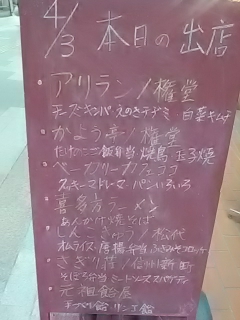 4/3 本日の出店
・アリラン/権堂
チーズキンパ えのきチヂミ 白菜キムチ
・かよう亭/権堂
たけのこご飯弁当 焼鳥 玉子焼
・ベーカリーカフェココ
ズッキーニトレーヌ パンいろいろ
・喜多方ラーメン
あんかけ焼そば
・しんこきゅう/松代
オムライス 唐揚弁当 ふきみそコロッケ
・さぎり荘/信州新町
そぼろ弁当 ミートソーススパゲティ
・元祖飴屋
リンゴ飴